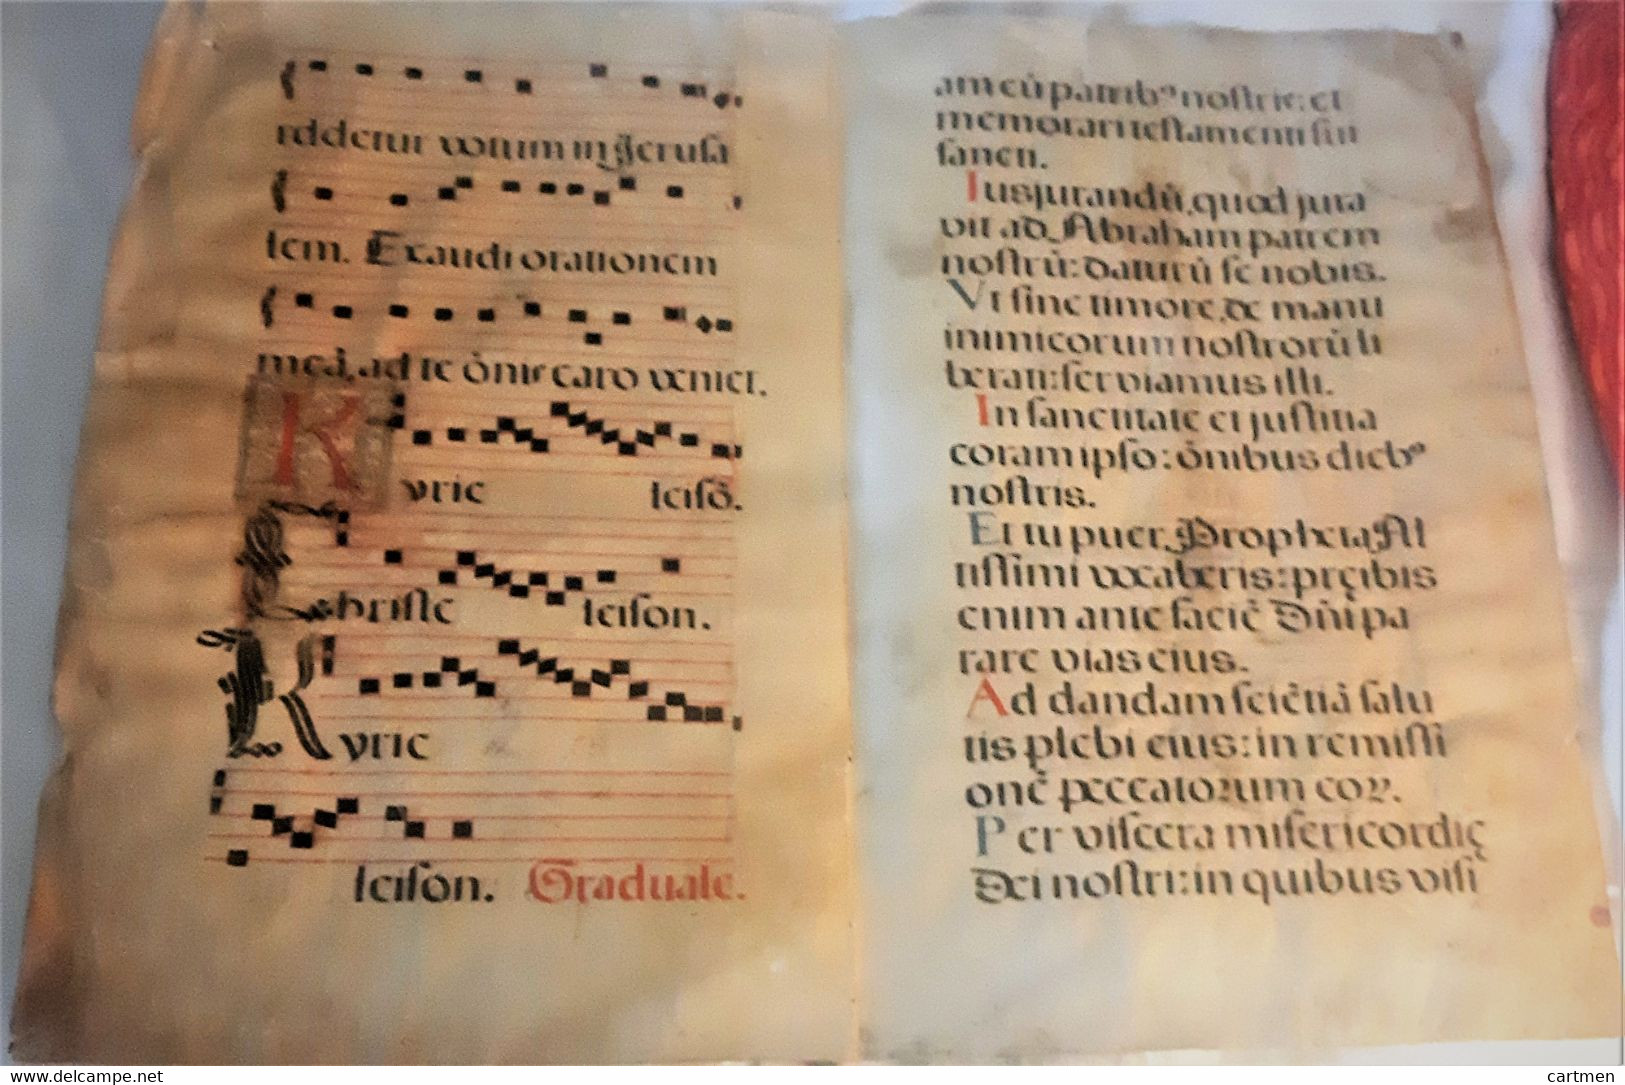 rddetur votum in Jerusa
lem. Exaudi orationem
meā, ad te ōnis caro veniet.
Kyrie leisō.
Christe leison.
Kyrie
leison. Graduale.
am cū patribꝰ nostris: et
memorari testamenti sui
sancti.
Iusjurandū, quod jura
vit ad Abraham patrem
nostrū: daturū se nobis.
Ut sine timore, de manu
inimicorum nostrorū li
berati: serviamus illi.
In sanctitate et justitia
coram ipso: ōnibus diebꝰ
nostris.
Et tu puer, Propheta Al
tissimi vocaberis: pręibis
enim ante faciē Dñi pa
rare vias eius.
Ad dandam sciētiā salu
tis plebi eius: in remissi
onē peccatoꝛum eoꝝ.
Per viscera misericordię
Dei nostri: in quibus visi
www.delcampe.net
cartmen